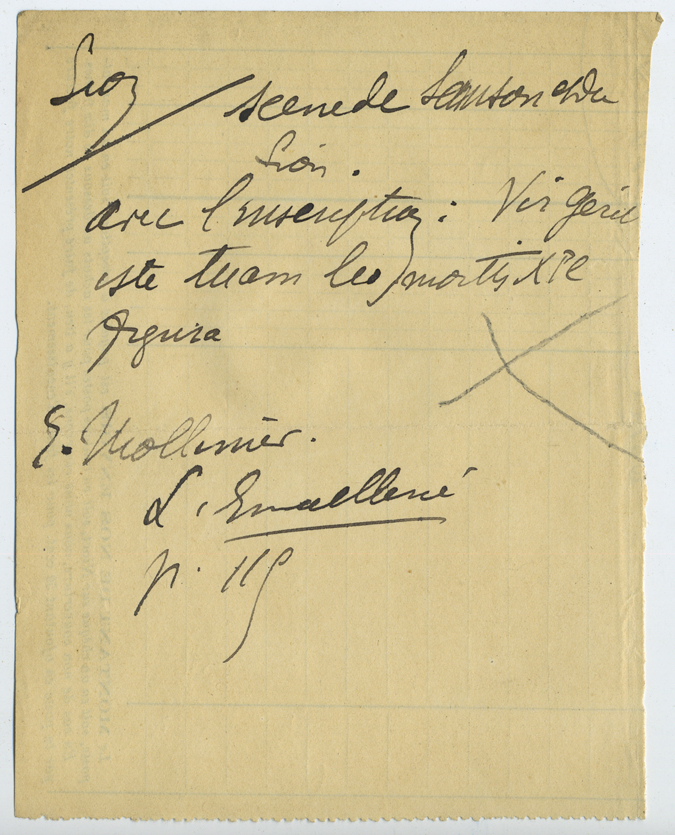 Lion
scene de Samson et du
Lion.
avec l'inscription : Vir gerit
iste tuam leo mortis XPE
figura
E. Mollinier.
L'Emaillerie
p. 119